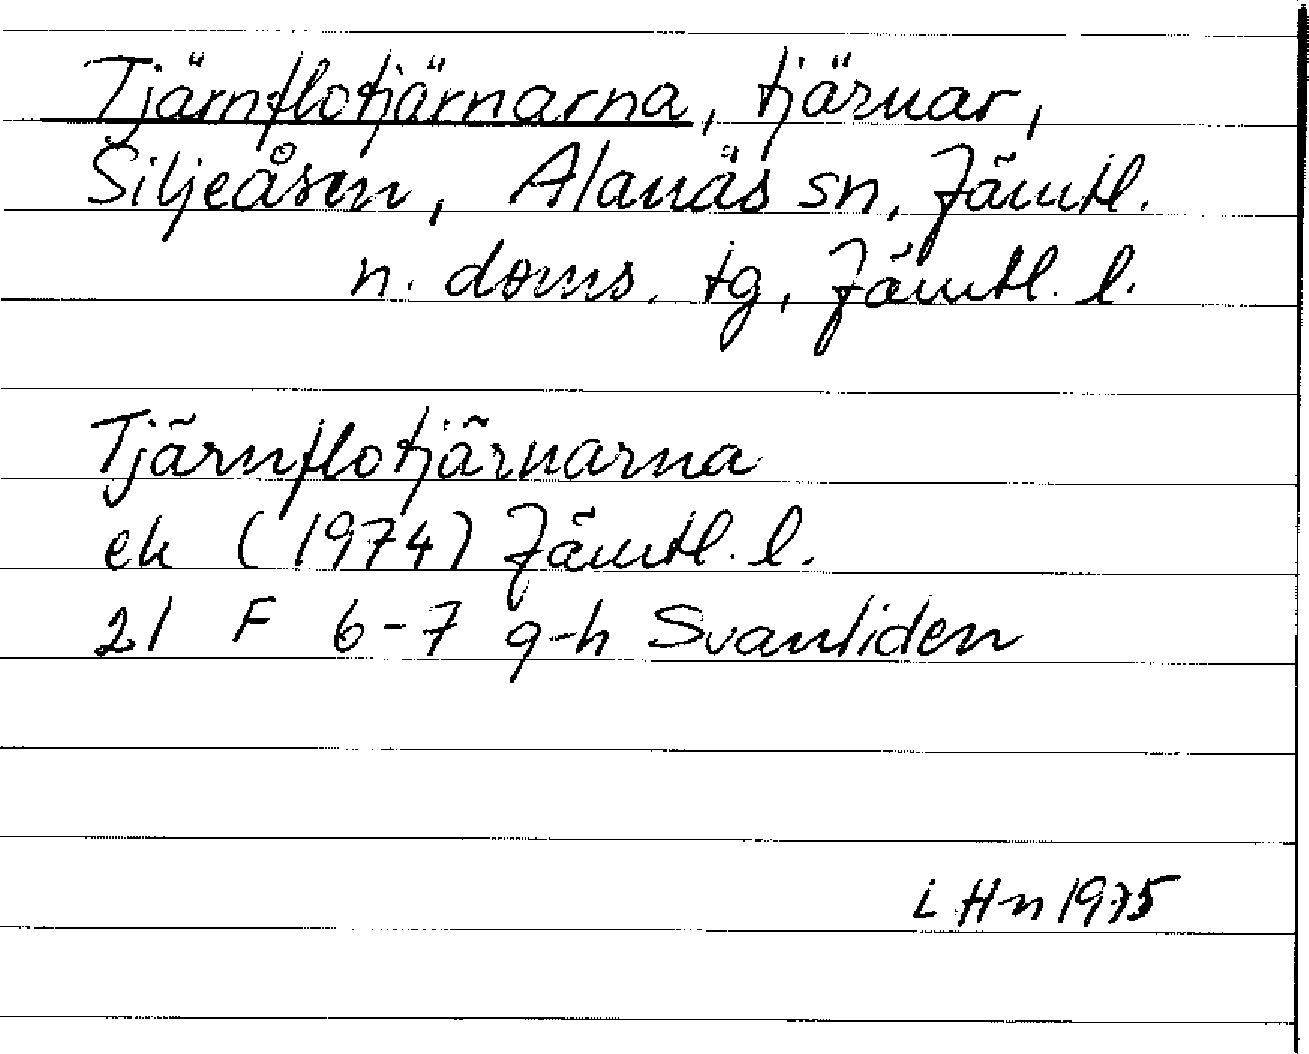 Tjärnflotjärnarna, tjärnar,
Siljeåsen, Alanäs sn, Jämtl.
n. doms. tg, Jämtl. l.
Tjärnflotjärnarna
ek (1974) Jämtl. l.
21 F 6-7 g-h Svanliden
L Hn 1975